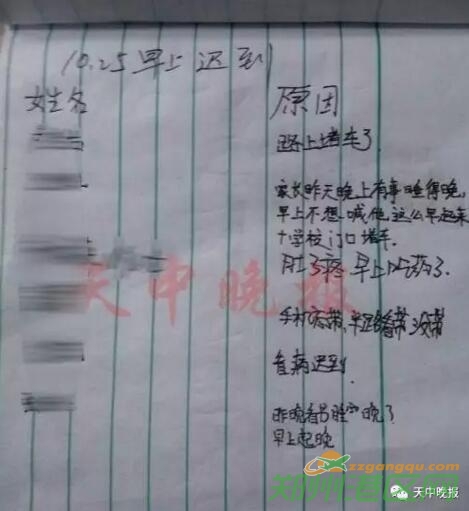 10.25早上迟到
姓名
原因
路上堵车了
家长昨天晚上有事睡得晚,
早上不想喊他这么早起来
+学校门口堵车.
肚子疼 早上吃药了.
天中晚报
手机忘带,半路看带没带
看病迟到.
昨晚看书睡的晚了
早上起晚
zzgangqu.com
天中晚报